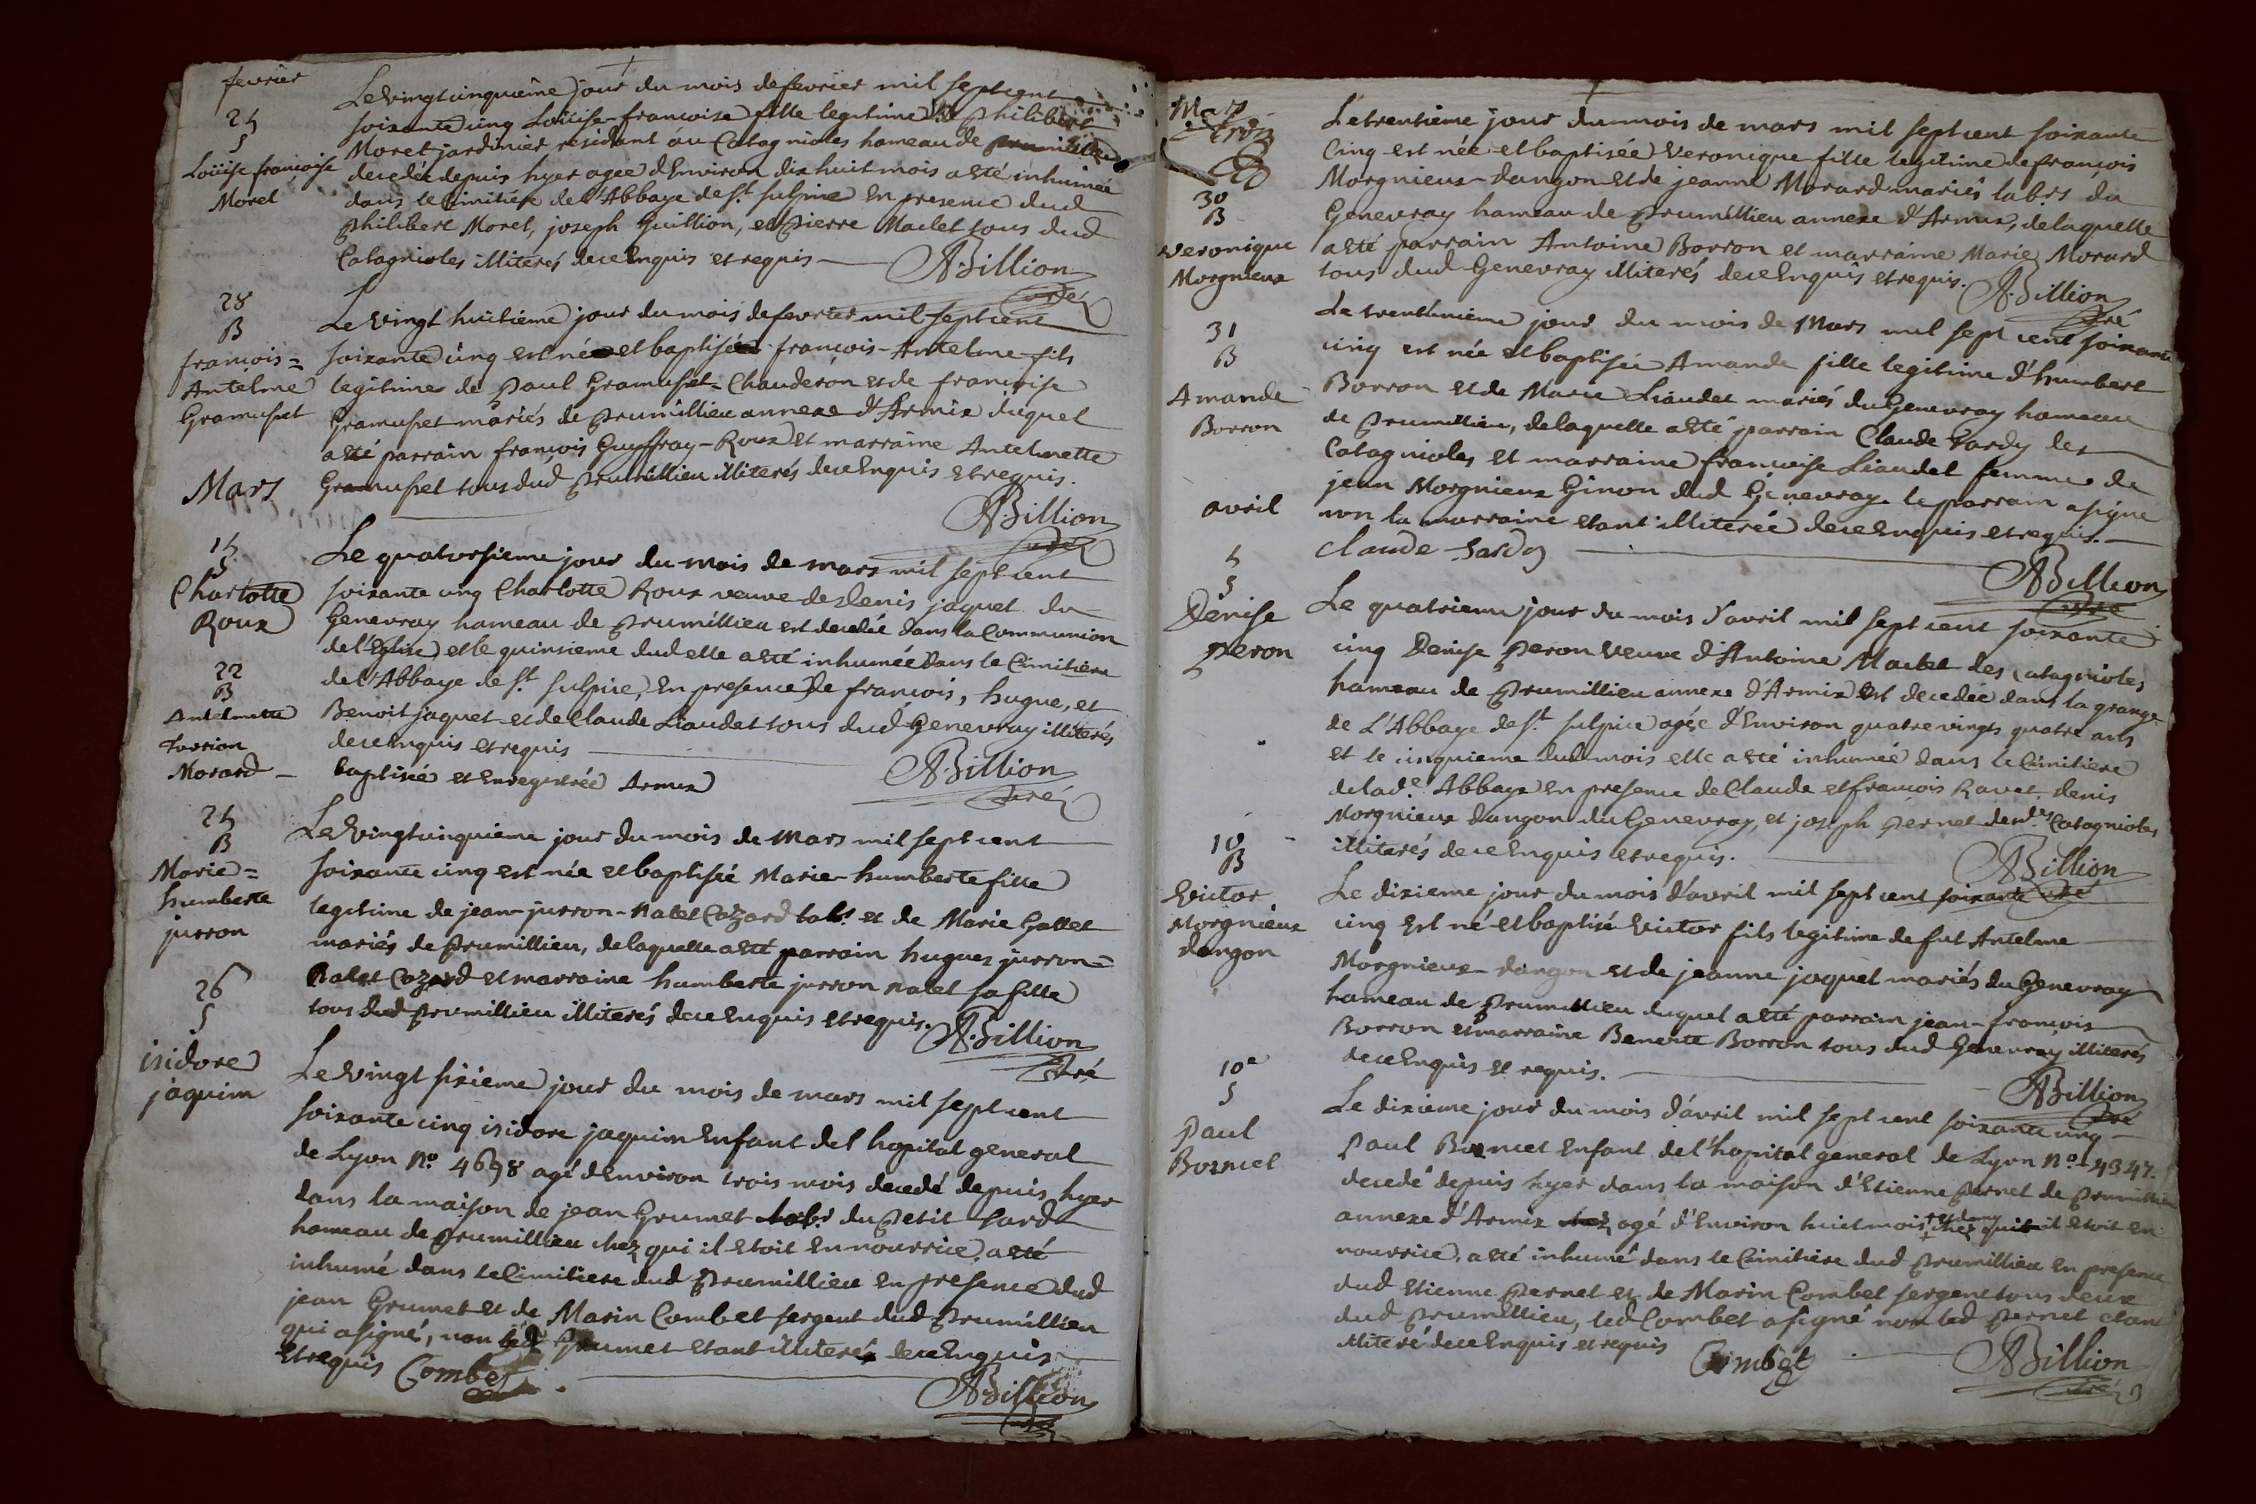 fevrier
25
S
Loüise françoise
Morel
Le vingt cinquieme jour du mois de fevrier mil sept cent
soixante cinq Loüise-francoise fille legitime de Philibert
Moret jardinier residant au Catagnioles hameau de prumillieu
decedée depuis hyer agee d'Environ dix huit mois a eté inhumée
dans le Cimitiére de l'Abbaye de st. sulpice En presence dud
Philibert Morel, joseph Guillion, et Pierre Maclet tous dud
Catagnioles illiterés de ce Enquis et requis
ABillion
curé
28
B
françois=
Antelme
Gramuset
Le vingt huitiéme jour du mois de fevrier mil sept cent
soixante cinq est né et baptisé françois-Antelme fils
legitime de Paul Gramuset-Chauderon et de francoise
Gramuset mariés de Prumillieu annexe d'Armix duquel
a eté parrain françois Guyffray-Roux et marraine Antelmette
Gramuset tous dud Prumillieu illiterés de ce Enquis et requis.
ABillion
curé
Mars
15
S
Charlotte
Roux
Le quatorsieme jour du mois de mars mil sept cent
soixante cinq Charlotte Roux veuve de Denis jaquet du
Genevray hameau de Prumillieu est decedée dans la Communion
de l'Eglise et le quinsieme dud elle a eté inhumée dans le Cimitiere
de l'Abbaye de st. sulpice, En presence de francois, hugue, et
Benoit jaquet et de Claude Liaudet tous dud Genevray illiterés
de ce Enquis et requis
ABillion
curé
22
B
Antelmette
Jurrion
Morard
baptisée et Enregistrée Armix
25
B
Marie=
humberte
jurron
Le vingt cinquieme jour du mois de Mars mil sept cent
soixante cinq est née et baptisée Marie-humberte fille
legitime de jean-jurron-Natel Cozard labr. et de Marie Gallet
mariés de Prumillieu, de laquelle a eté parrain hugues jurron=
Natet Cozard et marraine humberte jurron Natel sa fille
tous dud Prumillieu illiterés de ce Enquis et requis.
ABillion
Curé
26
S
isidore
jaquim
Le vingt sixieme jour du mois de mars mil sept cent
soixante cinq isidore jaquim Enfant de l'hopital general
de Lyon No. 4698 agé d'Environ trois mois decedé depuis hyer
dans la maison de jean Grumet labr. du Petit
hameau de Prumillieu chez qui il etoit En nourrice, a eté
inhumé dans le Cimitiere dud Prumillieu En presence dud
jean Grumet et de Marin Combet sergent dud Prumillieu
qui a signé, non led Grumet etant illiteré de ce Enquis
et requis Combet
ABillion
curé
Mars
30
B
Veronique
Morgnieux
Le trentieme jour du mois de mars mil sept cent soixante
Cinq est née et baptisée Veronique fille legitime de françois
Morgnieux-dangon et de jeanne Morard mariés labrs. du
Genevray hameau de Prumillieu annexe d'Armix, de laquelle
a eté parrain Antoine Borron et marraine Marie Morard
tous dud Genevray illiterés de ce Enquis et requis.
ABillion
Curé
31
B
Amande
Borron
Le trentunieme jour du mois de Mars mil sept cent soixante
cinq est née et baptisée Amande fille legitime d'humbert
Borron et de Marie Liaudet mariés du Genevray hameau
de Prumillieu, de laquelle a eté parrain Claude Tardy des
Catagnioles et marraine francoise Liaudet femme de
jean Morgnieux Ginon dud Genevray le parrain a signe
non la marraine etant illiterée de ce Enquis et requis.
Claude Tardy
ABillion
curé
avril
5
S
Denise
Peron
Le quatrieme jour du mois d'avril mil sept cent soixante
cinq Denise Peron veuve d'Antoine Maclet des Catagnioles
hameau de Prumillieu annexe d'Armix est decedée dans la grange
de L'Abbaye de st. sulpice agée d'Environ quatre vingts quatre ans
et le cinquieme dud mois elle a eté inhumée dans le Cimitiere
de lade. Abbaye En presence de Claude et francois Ravet, denis
Morgnieux dangon du Genevray, et joseph Pernet desdes. Catagnioles
illiterés de ce Enquis et requis.
ABillion
curé
10
B
Victor
Morgnieux
dangon
Le dixieme jour du mois d'avril mil sept cent soixante
cinq Est né et baptisé Victor fils legitime de fut Antelme
Morgnieux-dangon et de jeanne jaquet mariés du Genevray
hameau de Prumillieu duquel a eté parrain jean-francois
Borron et marraine Benoite Borron tous dud Genevray illiterés
de ce Enquis et requis.
ABillion
Curé
10e
S
Paul
Bornicet
Le dixieme jour du mois d'avril mil sept cent soixante cinq
Paul Enfant de l'hopital general de Lyon No. 4347.
decedé depuis hyer dans la maison d'Etienne Pernet de Prumillieu
annexe d'Armix chez agé d'Environ huit mois chez qui il etoit en
nourrice, a eté inhumé dans le Cimitiere dud Prumillieu En presence
dud Etienne Pernet et de Marin Combet sergent tous deux
dud Prumillieu, led Combet a signé non led Pernet etan
illiteré de ce Enquis et requis
Combet
ABillion
curé